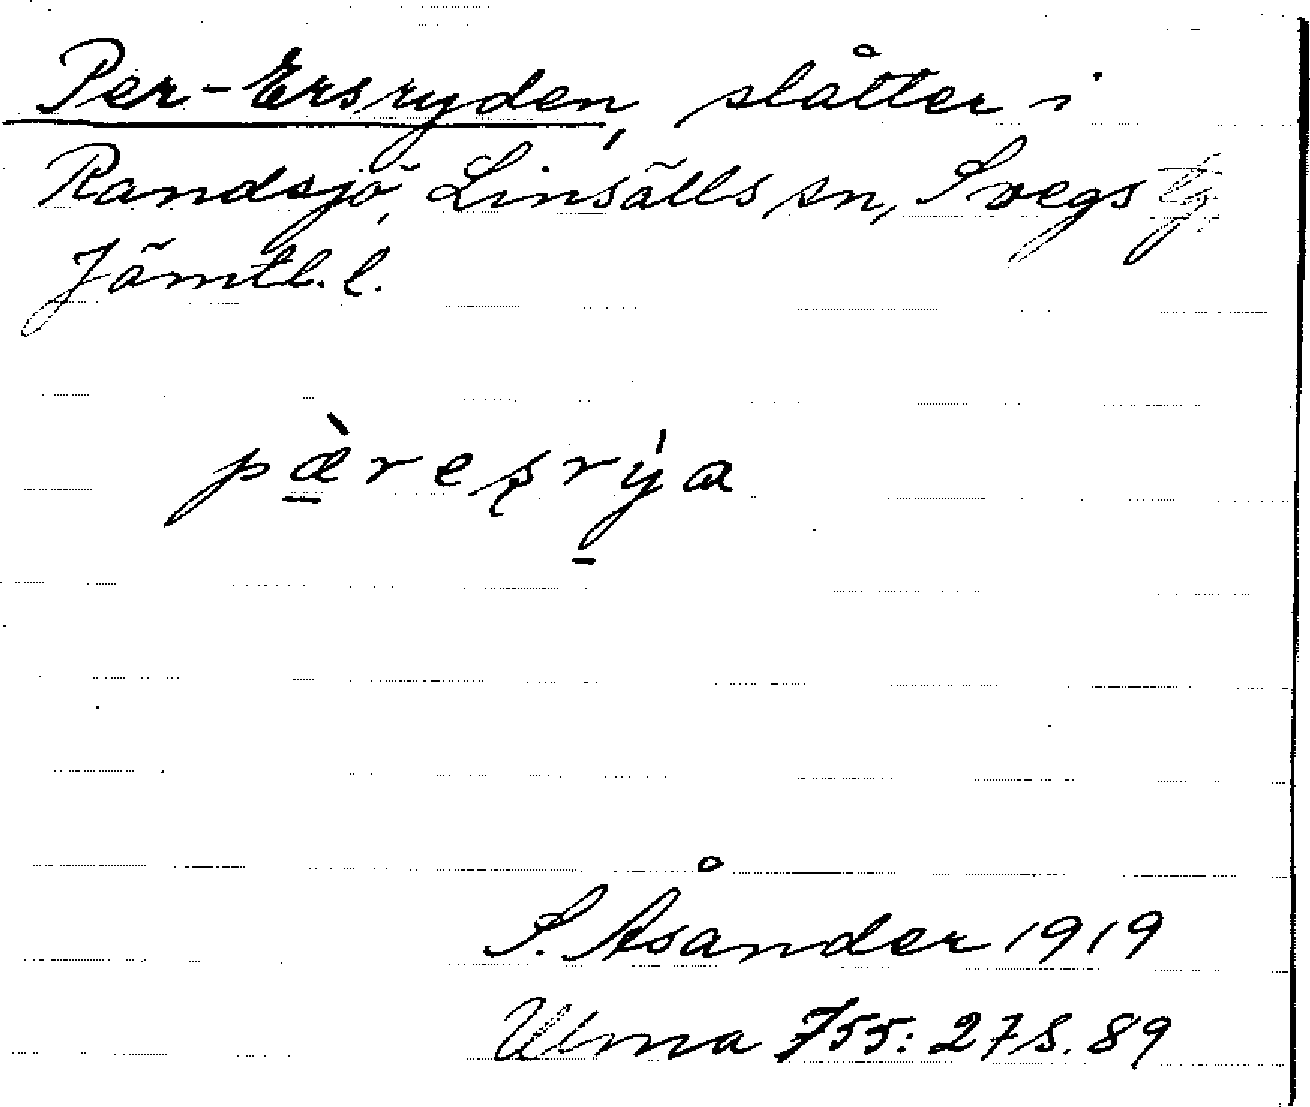 Per-Ersryden, slåtter i
Randsjö, Linsälls sn, Svegs tg,
Jämtl. l.
pæ̀reʂrýa
S. Åsander 1919
Ulma 755: 27 s. 89